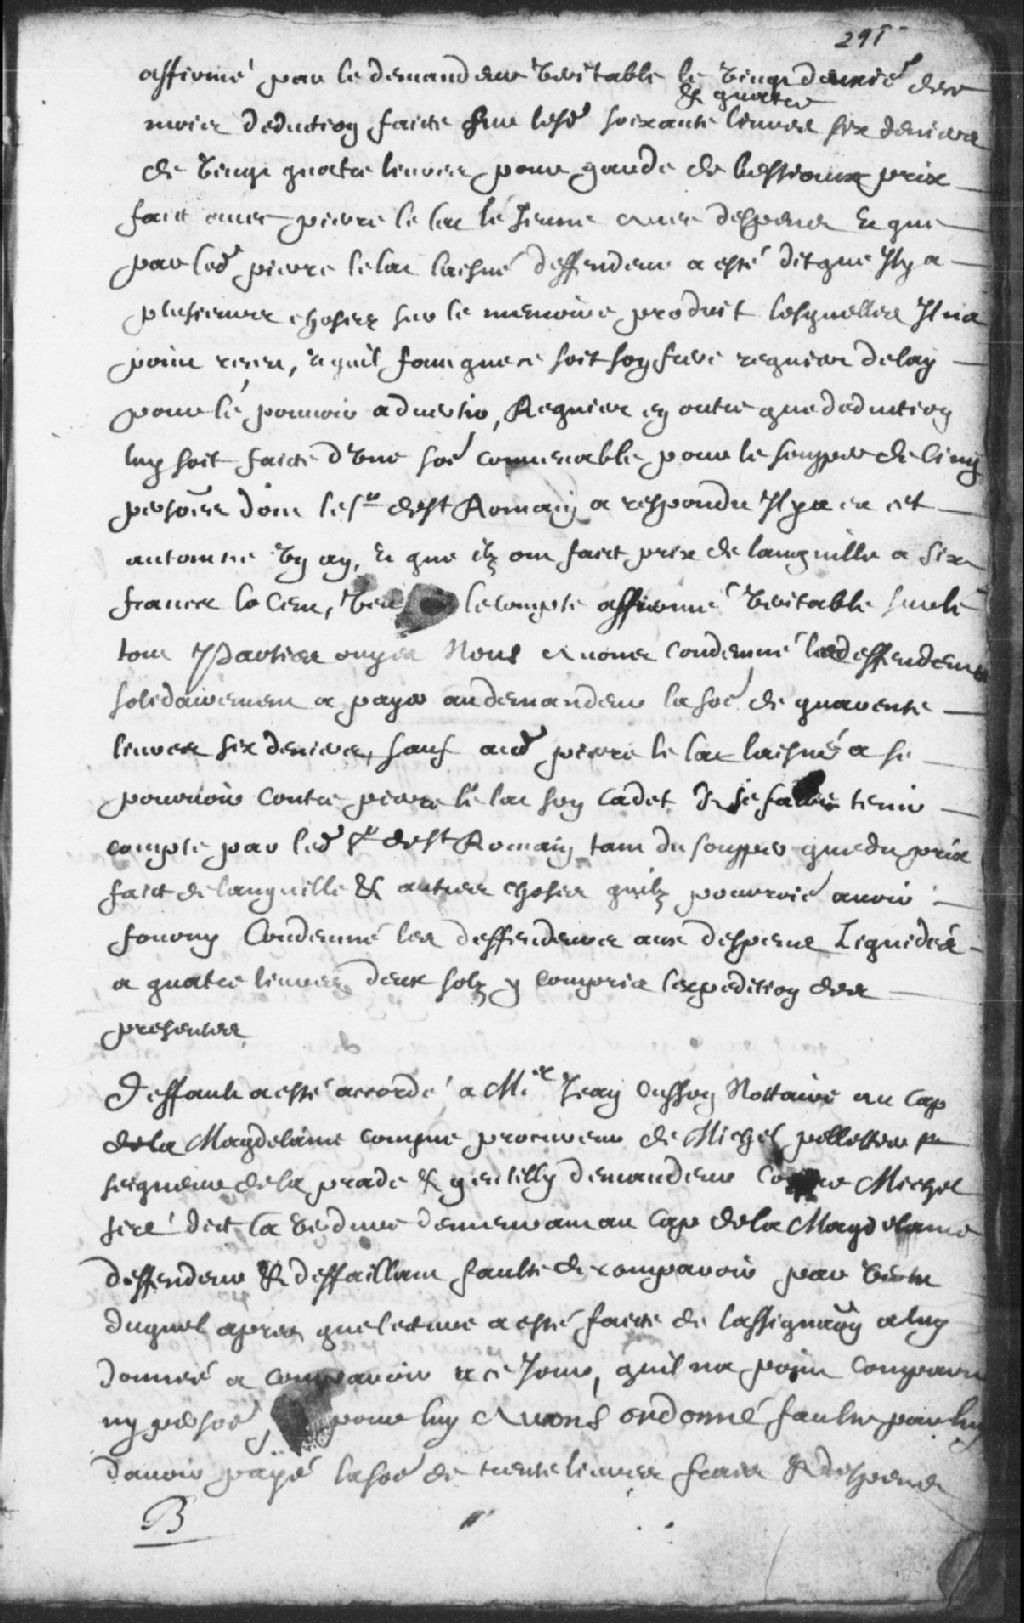 291
affirmé par le demandeur veritable le vingt deuxiè des
& quatre
mois deduction faitte sur lesd soixante livres six deniers
de vingt quatre livres pour garde de bestiaux prix
fait avec pierre le lac le Jeune avec despens Et que
par led pierre le lac laisné deffendeur a esté dit que Il y a
plusieurs choses sur le memoire produit lesquelles Il na
point receu, Et quil faut que ce soit son frere requiert delay
pour le pouvoir advertir, Requiert en outre que deduction
luy soit faitte d'une soe convenable pour le souper de Cinq
persoes dont le sr de St Romain a respondu Il y a eu cet
automne Un an, Et que ilz ont fait prix de languille a Six
francs le Cent, Veu le compte affirmé veritable sur le
tout Parties ouyes Nous Avons Condemné les deffendeurs
solidairement a payer au demandeur la soe de quarente
livres six deniers, sauf aud pierre le lac laisné a se
pourvoir contre pierre le lac son Cadet Et se faire tenir
compte par led sr de St Romain tant du soupper que du prix
fait de languille & autres choses quilz pourroiē avoir
fourny Condemné les deffendeurs aux despens Liquidés
a quatre livres deux solz y compris lexpedition des
presentes
Deffault a esté accordé a Me Jean Cusson Nottaire au Cap
de la Magdelaine comme procureur de Michel pelletier sr
seigneur de la prade & gentilly demandeur Contre Michel
feré dit la Verdure demeurant au Cap de la Magdelaine
deffendeur & deffaillant faulte de comparoir par vertu
duquel apres que lecture a esté faitte de lassignaōn a luy
donneé a comparoir a ce Jour, quil na point comparu
ny persoe pour luy Avons ordonné faulte par luy
davoir payé la soe de trente livres frais & despens
B